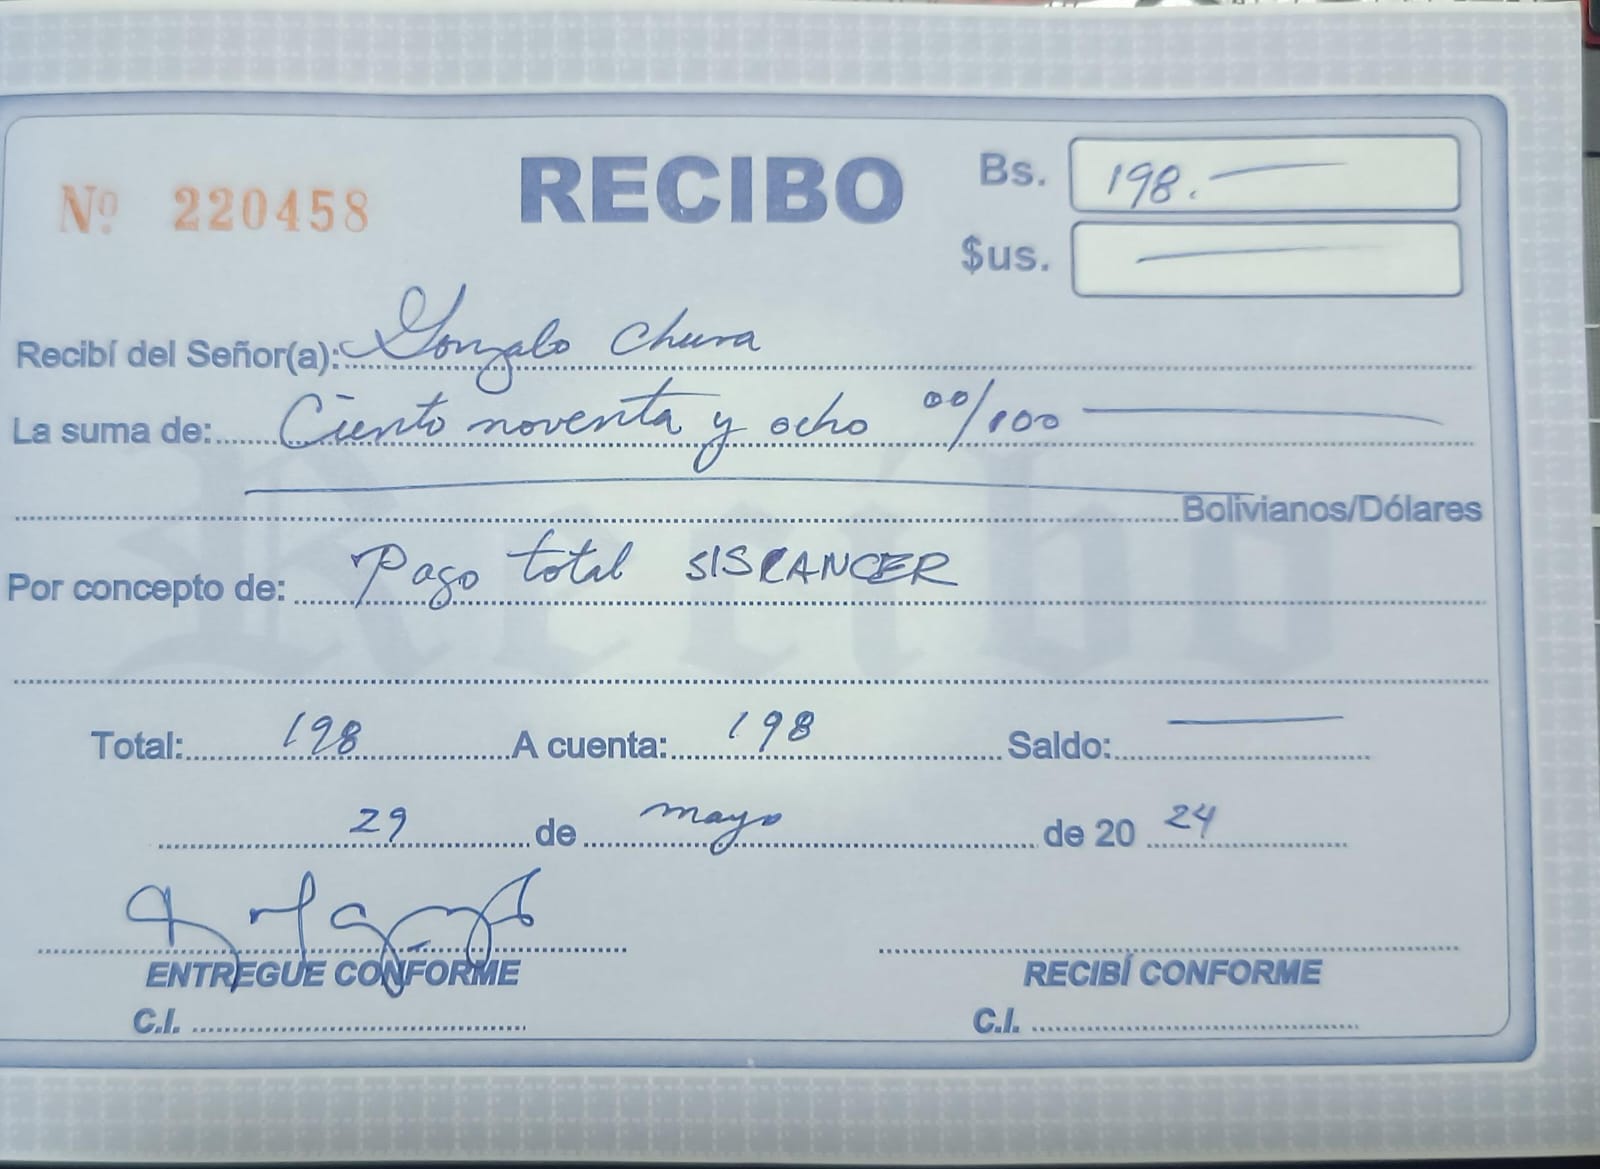 Nº 220458
RECIBO
Bs. 198.
$us.
Recibí del Señor(a): Gonzalo Chura
La suma de: Ciento noventa y ocho 00/100
Bolivianos/Dólares
Por concepto de: Pago total SISCANCER
Recibo
Total: 198 A cuenta: 198 Saldo:
29 de mayo de 20 24
ENTREGUE CONFORME RECIBÍ CONFORME
C.I. C.I.